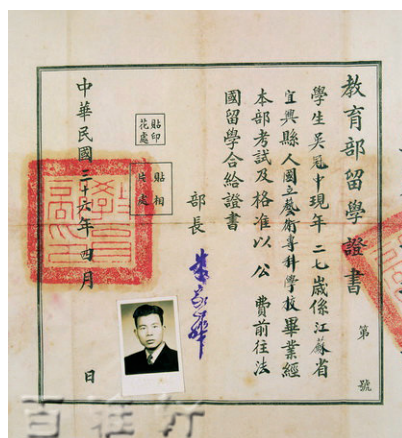 教育部留學證書
第　號
學生吳冠中現年二七歲係江蘇省
宜興縣人國立藝術專科學校畢業經
本部考試及格准以公費前往法
國留學合給證書
部長
朱家驊
貼印花處
貼相片處
中華民國三十六年四月　日
百雅軒